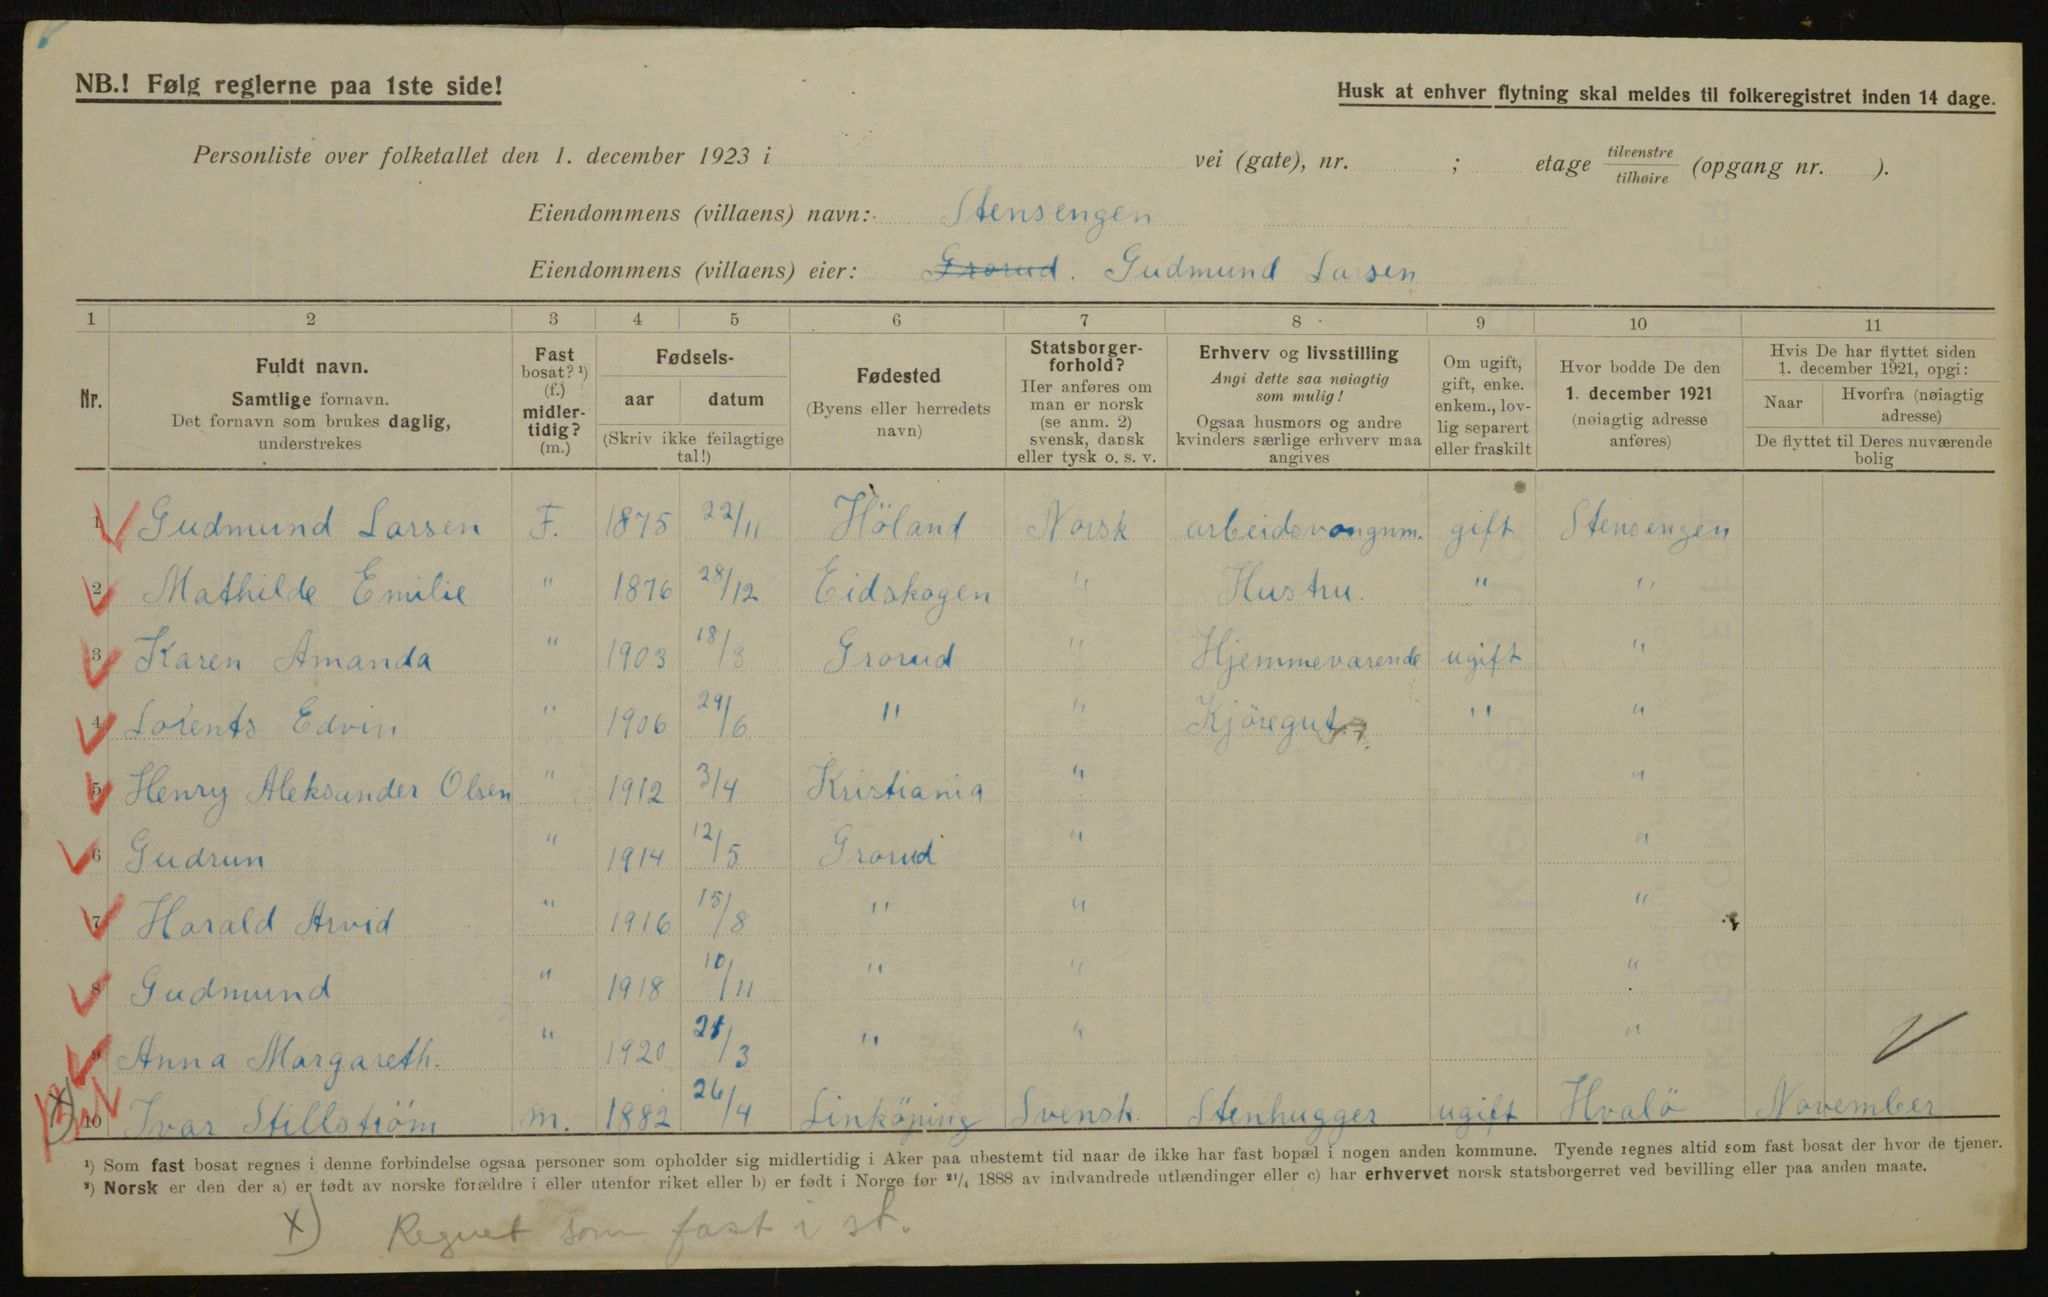 NB.! Følg reglerne paa 1ste side!
Husk at enhver flytning skal meldes til folkeregistret inden 14 dage.
Personliste over folketallet den 1. december 1923 i vei (gate), nr. ; etage tilvenstre / tilhøire (opgang nr. ).
Eiendommens (villaens) navn: Stensengen
Eiendommens (villaens) eier: Grorud. Gudmund Larsen
1 2 3 4 5 6 7 8 9 10 11
Nr.
Fuldt navn.
Samtlige fornavn.
Det fornavn som brukes daglig,
understrekes
Fast
bosat? ¹)
(f.)
midler-
tidig?
(m.)
Fødsels-
aar datum
(Skriv ikke feilagtige
tal!)
Fødested
(Byens eller herredets
navn)
Statsborger-
forhold?
Her anføres om
man er norsk
(se anm. 2)
svensk, dansk
eller tysk o. s. v.
Erhverv og livsstilling
Angi dette saa nøiagtig
som mulig!
Ogsaa husmors og andre
kvinders særlige erhverv maa
angives
Om ugift,
gift, enke.
enkem., lov-
lig separert
eller fraskilt
Hvor bodde De den
1. december 1921
(nøiagtig adresse
anføres)
Hvis De har flyttet siden
1. december 1921, opgi:
Naar
Hvorfra (nøiagtig
adresse)
De flyttet til Deres nuværende
bolig
1 Gudmund Larsen F. 1875 22/11 Höland Norsk arbeidsvongnm. gift Stensengen
2 Mathilde Emilie " 1876 28/12 Eidskogen " Hustru. " "
3 Karen Amanda " 1903 18/3 Grorud " Hjemmeværende ugift "
4 Lorents Edvin " 1906 29/6 " " Kjöregut " "
5 Henry Aleksander Olsen " 1912 3/4 Kristiania " "
6 Gudrun " 1914 12/5 Grorud " "
7 Harald Arvid " 1916 15/8 " " "
8 Gudmund " 1918 10/11 " " "
9 Anna Margareth. " 1920 21/3 " " "
10 Ivar Stillström m. 1882 26/4 Linköping Svensk. Stenhugger ugift Hvalö November
¹) Som fast bosat regnes i denne forbindelse ogsaa personer som opholder sig midlertidig i Aker paa ubestemt tid naar de ikke har fast bopæl i nogen anden kommune. Tyende regnes altid som fast bosat der hvor de tjener.
²) Norsk er den der a) er født av norske forældre i eller utenfor riket eller b) er født i Norge før 21/4 1888 av indvandrede utlændinger eller c) har erhvervet norsk statsborgerret ved bevilling eller paa anden maate.
x) Regnet som fast i st.